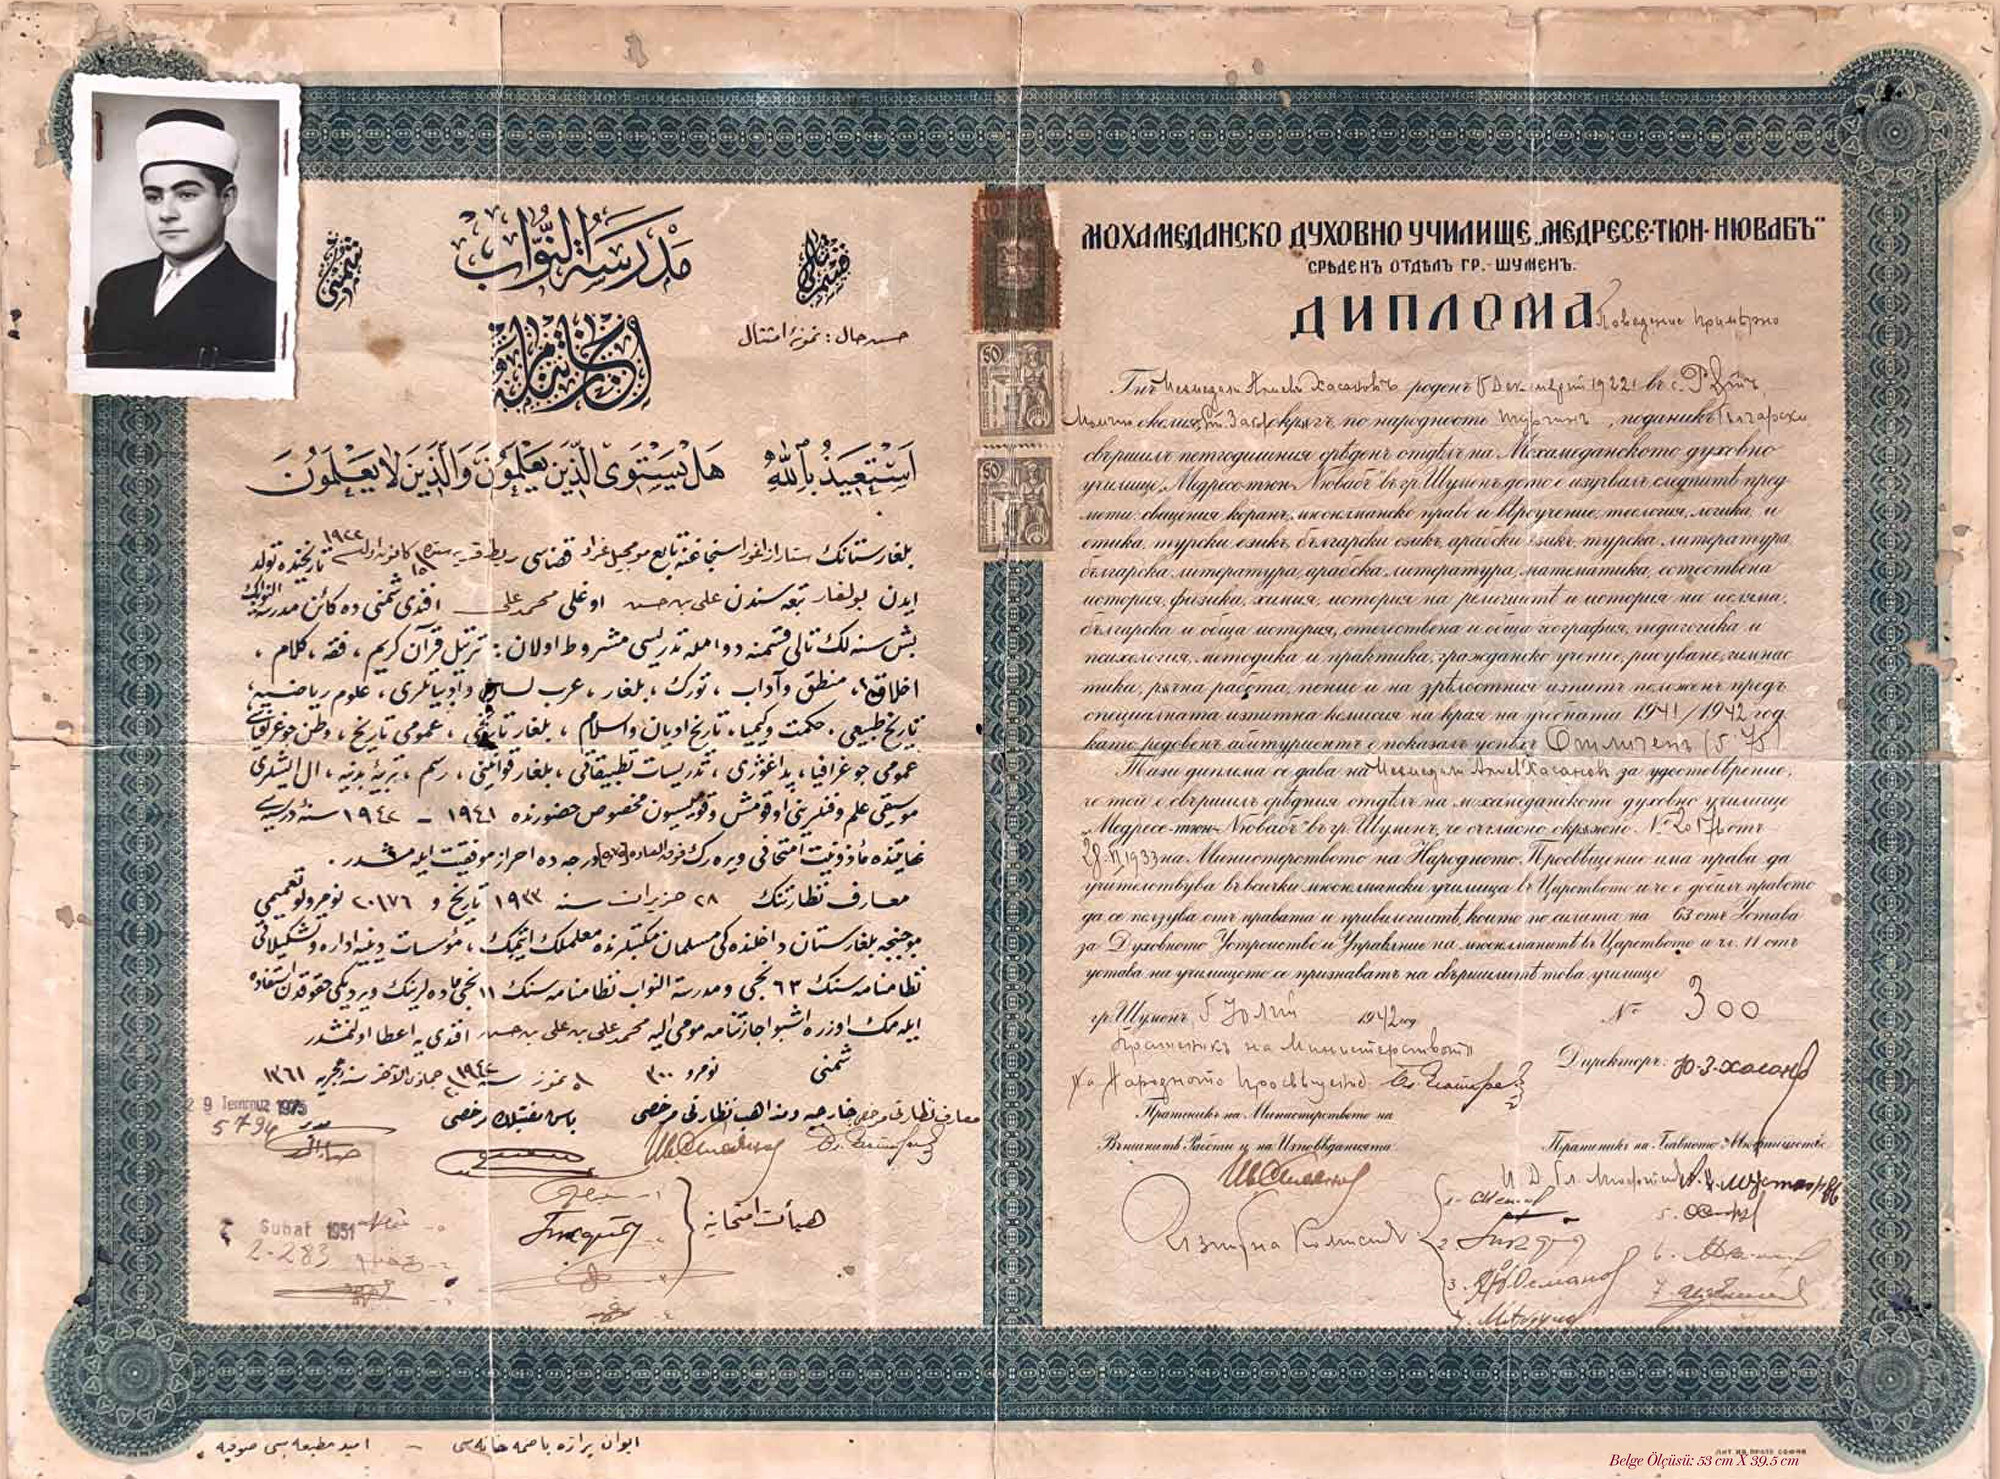 مدرسة النواب
قسم تالی
شمنی
اجازتنامه
حسن حال : نمونهٔ امتثال
استعيذ بالله هل يستوى الذين يعلمون والذين لا يعلمون
بلغارستانك ستارازاغورا سنجاغنه تابع موميجيلغراد قضاسى قريه سنده ١٥ كانون اول ١٩٢٢ تاريخنده تولد
ايدن بولغار تبعه سندن على بن حسن اوغلى محمد على افندى شمنى ده كائن مدرسة النوابك
بش سنه لك تالى قسمنه دوامله تدريسى مشروط اولان : ترتيل قرآن كريم ، فقه ، كلام ،
اخلاق ، منطق وآداب ، تورك ، بلغار ، عرب لسان وادبياتلرى ، علوم رياضيه ،
تاريخ طبيعى ، حكمت وكيميا ، تاريخ اديان واسلام ، بلغار تاريخى ، عمومى تاريخ ، وطن جوغرافياسى
عمومى جوغرافيا ، پداغوژى ، تدريسات تطبيقاتى ، بلغار قوانينى ، رسم ، تربيهٔ بدنيه ، ال ايشلرى
موسيقى علم وفنلرينى اوقومش وقوميسيون مخصوص حضورنده ١٩٤١ – ١٩٤٢ سنهٔ درسيه سى
نهايتنده مأذونيت امتحانى ويره رك فوق العاده درجه ده احراز موفقيت ايله مشدر .
معارف نظارتنك ٢٨ حزيران سنه ١٩٣٣ تاريخ و ٢٠١٧٦ نومرولو تعميمى
موجبنجه بلغارستان داخلنده كى مسلمان مكتبلرنده معلملك ايتمك ، مؤسسات دينيه اداره وتشكيلاتى
نظامنامه سنك ٦٣ نجى ومدرسة النواب نظامنامه سنك ١١ نجى ماده لرينك ويرديكى حقوقدن استفاده
ايله مك اوزره اشبو اجازتنامه مومى اليه محمد على بن على بن حسن افندى يه اعطا اولنمشدر
شمنى نومرو ٣٠٠ ٥ تموز سنه ١٩٤٢ جماذى الآخر سنهٔ هجريه ١٣٦١
معارف نظارتى مرخصى خارجيه ومذاهب نظارتى مرخصى باش مفتيلك مرخصى مدير
29 Temmuz 1975
5794
هيأت امتحانيه
Subat 1951
2-283
ايوان پرازه باصمه خانه سى – اميد مطبعه سى صوفيه
10
50
50
МОХАМЕДАНСКО ДУХОВНО УЧИЛИЩЕ „МЕДРЕСЕ-ТЮН-НЮВАБЪ"
СРѢДЕНЪ ОТДѢЛЪ ГР.-ШУМЕНЪ.
ДИПЛОМА
Поведение примѣрно
Г-нъ Мехмедали Алиевъ Хасановъ роденъ 15 Декемврий 1922 г. въ с.
околия Ст. Заг. окрѫгъ по народность турчинъ, поданикъ български
свършилъ петгодишния срѣденъ отдѣлъ на Мохамеданското духовно
училище „Медресе-тюн-Нювабъ" въ гр. Шуменъ, дето е изучвалъ следнитѣ пред
мети: свещения коранъ, мюсюлманско право и нравоучение, теология, логика, и
етика, турски езикъ, български езикъ, арабски езикъ, турска литература,
българска литература, арабска литература, математика, естествена
история, физика, химия, история на религиитѣ и история на исляма,
българска и обща история, отечествена и обща география, педагогика и
психология, методика и практика, гражданско учение, рисуване, гимнас
тика, рѫчна работа, пение и на зрѣлостния изпитъ положенъ предъ
специалната изпитна комисия на края на учебната 1941/1942 год
като редовенъ абитуриентъ е показалъ успѣхъ Отличенъ (5.75)
Тази диплома се дава на Мехмедали Алиевъ Хасановъ за удостовѣрение,
че той е свършилъ срѣдния отдѣлъ на мохамеданското духовно училище
„Медресе-тюн-Нювабъ" въ гр. Шуменъ, че съгласно окрѫжно № 20176 отъ
28.VI.1933 на Министерството на Народното Просвѣщение има права да
учителствува въ всички мюсюлмански училища въ Царството и че е добилъ правото
да се ползува отъ правата и привилегиитѣ, които по силата на 63 отъ Устава
за Духовното Устройство и Управление на мюсюлманитѣ въ Царството и чл. 11 отъ
устава на училището се признаватъ на свършилитѣ това училище
гр. Шуменъ, 5 Юлий 1942 год. № 300
Пратеникъ на Министерството
на Народното Просвѣщение: Директоръ: Ю. З. Хасанов
Пратеникъ на Министерството на
Външнитѣ Работи и на Изповѣданията Пратеникъ на Главното Мюфтийство
И. Д. Гл. Мюфтия
Изпитна Комисия 1. 5.
2. 6.
3. Османов 7.
4.
ЛИТ. ИВ. ПРОТЕ СОФИЯ
Belge Ölçüsü: 53 cm X 39.5 cm